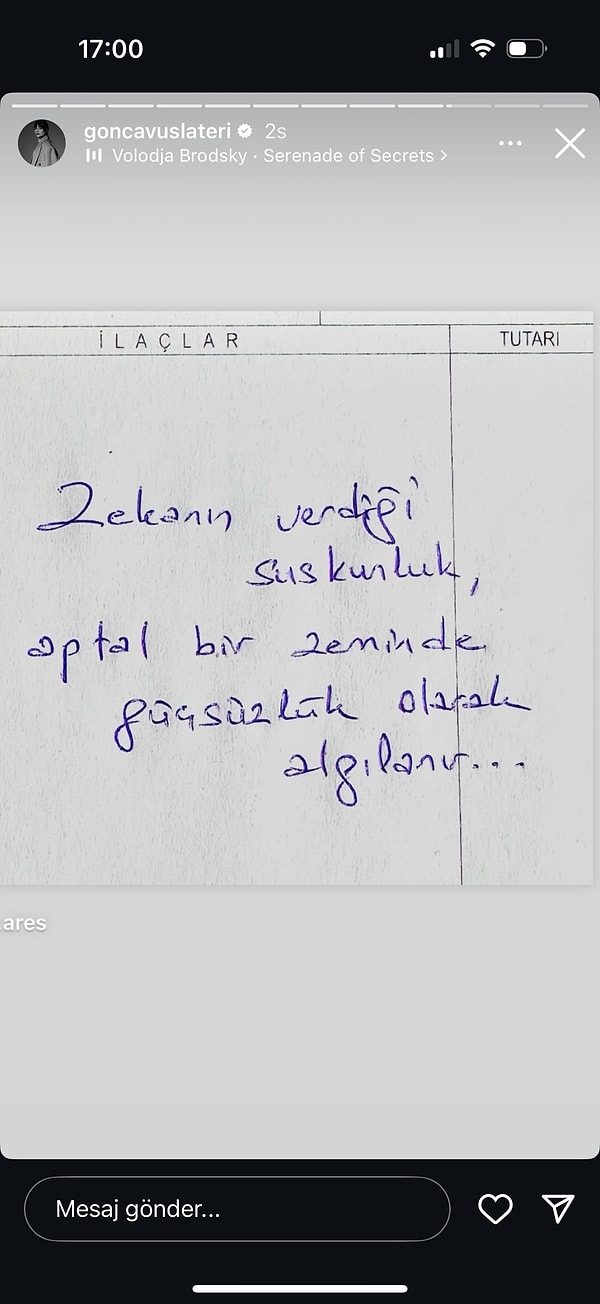 17:00
goncavuslateri 2s
Volodja Brodsky · Serenade of Secrets >
İLAÇLAR TUTARI
Zekanın verdiği
suskunluk,
aptal bir zeminde
güçsüzlük olarak
algılanır...
.ares
Mesaj gönder...